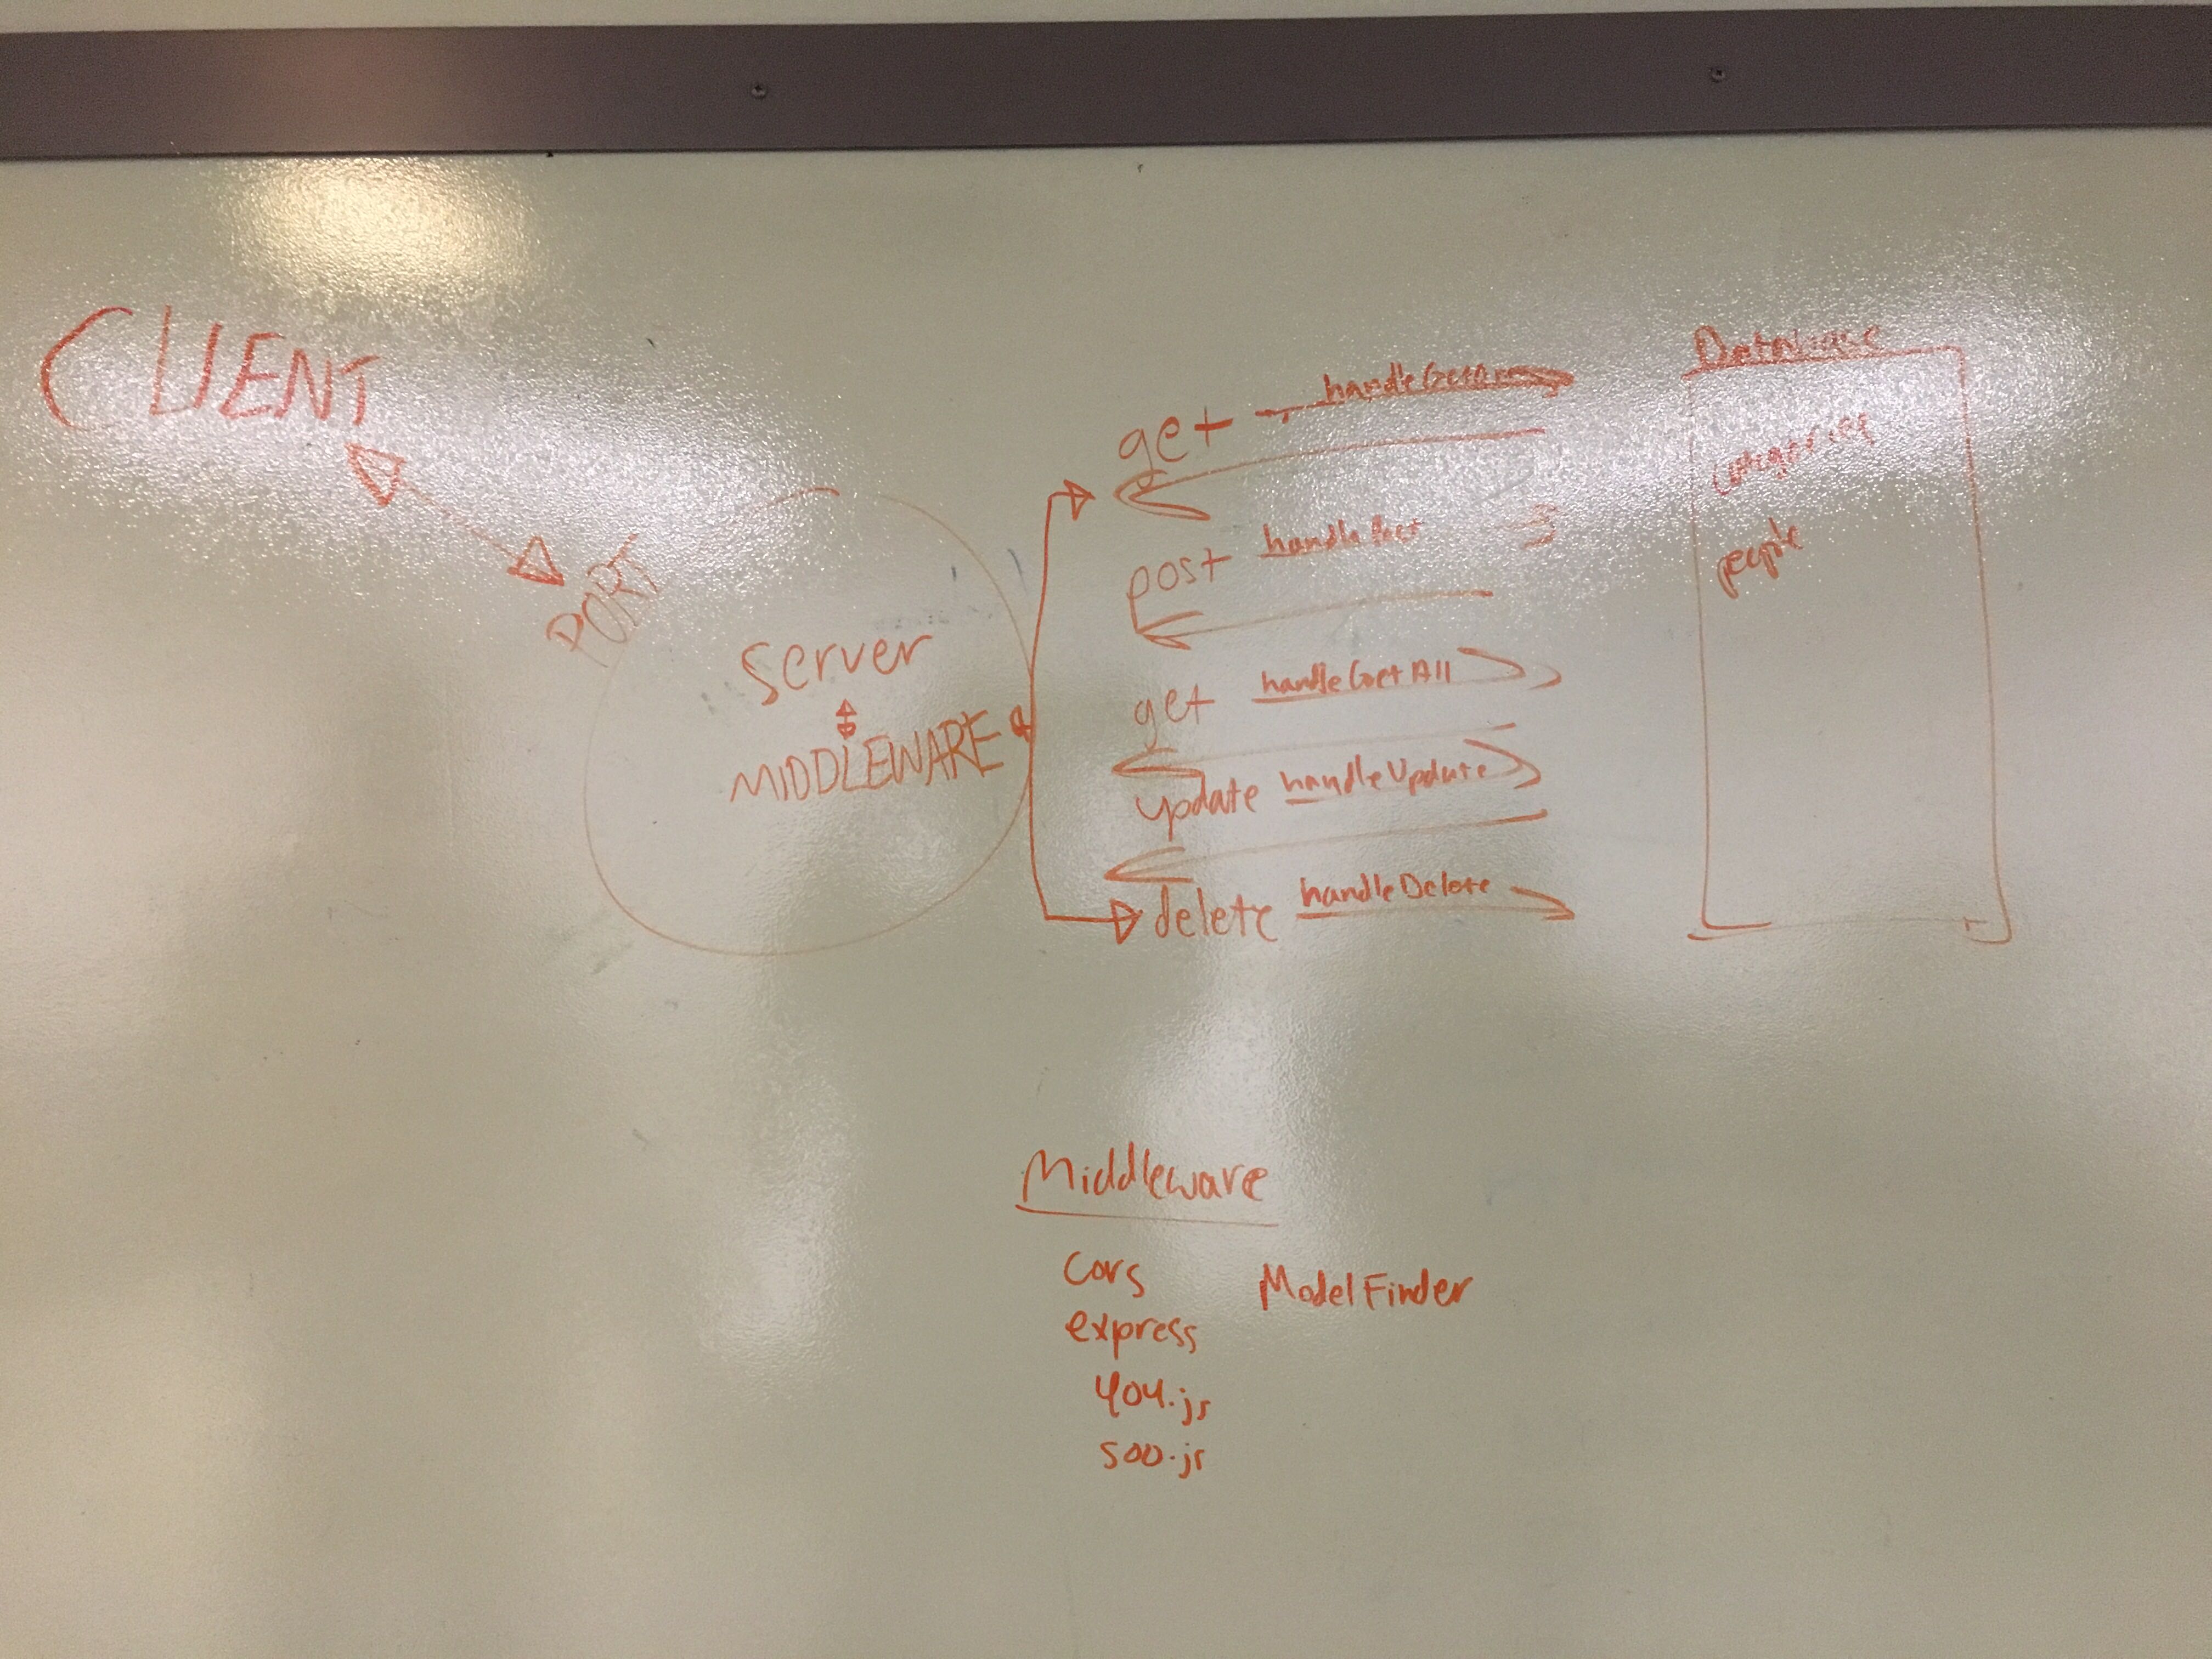 CLIENT
PORT
server
MIDDLEWARE
get handleGetOne
post handlePost
get handleGetAll
update handleUpdate
delete handleDelete
Database
categories
people
Middleware
cors ModelFinder
express
404.js
500.js